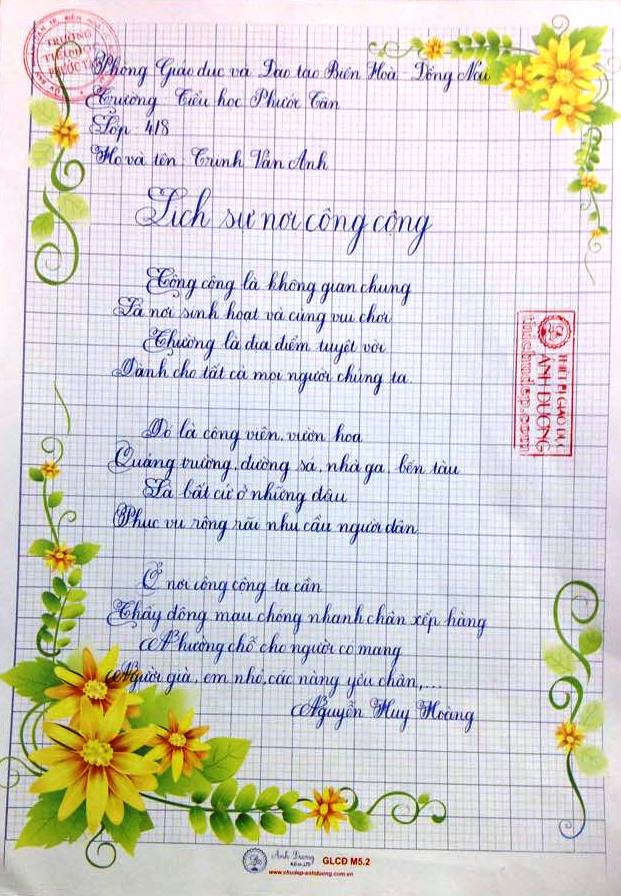 TRƯỜNG
TIỂU HỌC
PHƯỚC TÂN
Phòng Giáo dục và Đào tạo Biên Hoà - Đồng Nai
Trường Tiểu học Phước Tân
Lớp 4/8
Họ và tên: Trịnh Vân Anh
Lịch sự nơi công cộng
Công cộng là không gian chung
Là nơi sinh hoạt và cùng vui chơi
Thường là địa điểm tuyệt vời
Dành cho tất cả mọi người chúng ta.
Đó là công viên, vườn hoa
Quảng trường, đường sá, nhà ga, bến tàu
Là bất cứ ở những đâu
Phục vụ rộng rãi nhu cầu người dân.
Ở nơi công cộng ta cần
Thấy đông mau chóng nhanh chân xếp hàng
Nhường chỗ cho người có mang
Người già, em nhỏ, các nàng yếu chân,...
Nguyễn Huy Hoàng
THIẾT BỊ GIÁO DỤC
ÁNH DƯƠNG
Ánh Dương
GLCĐ M5.2
www.chudep-anhduong.com.vn